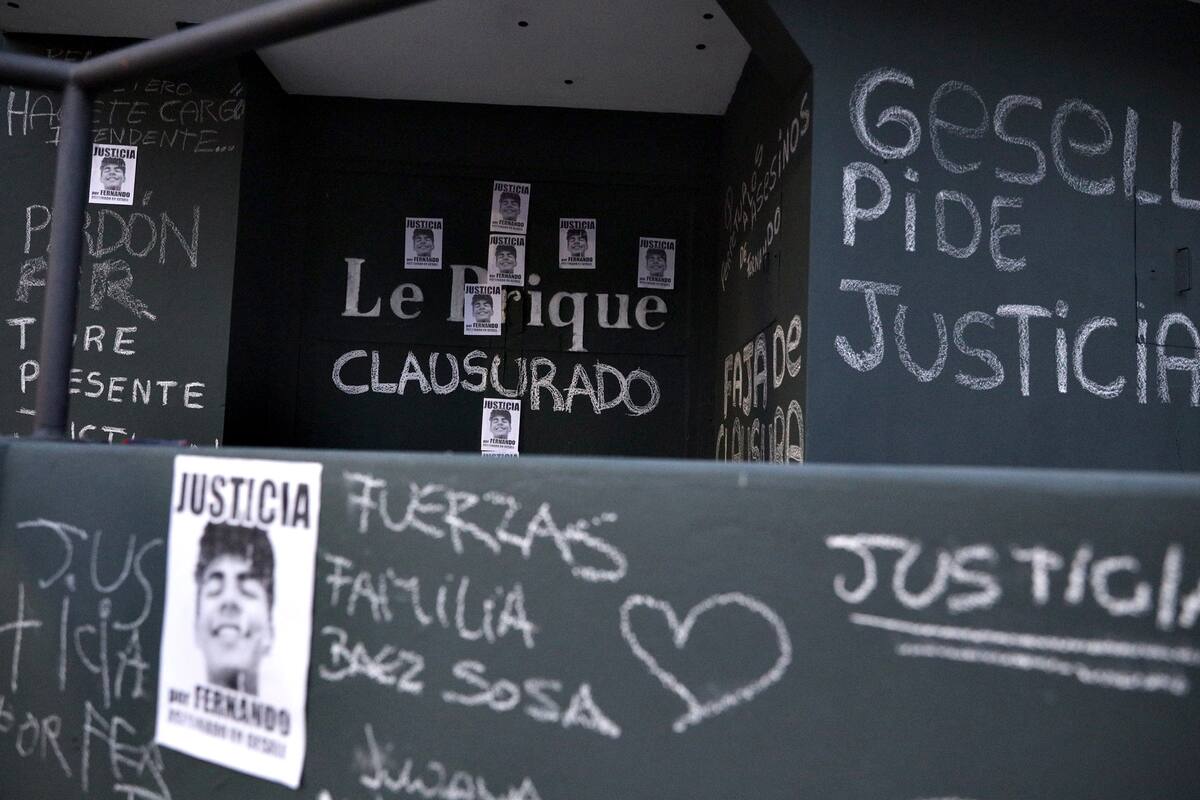 HAGETE CARGO
INTENDENTE...
JUSTICIA
por FERNANDO
PERDÓN
TIRRE
PRESENTE
JUSTICIA
por FERNANDO
JUSTICIA
por FERNANDO
JUSTICIA
por FERNANDO
JUSTICIA
por FERNANDO
JUSTICIA
por FERNANDO
Le Brique
JUSTICIA
por FERNANDO
CLAUSURADO
JUSTICIA
por FERNANDO
ASESINOS
DE
FAJA DE
CLAUSURA
GeseLL
PiDE
JUSTiCiA
JUSTICIA
por FERNANDO
JUS
TiCiA
POR
FUERZAS
FAMILIA
BAEZ SOSA
JUSTICIA